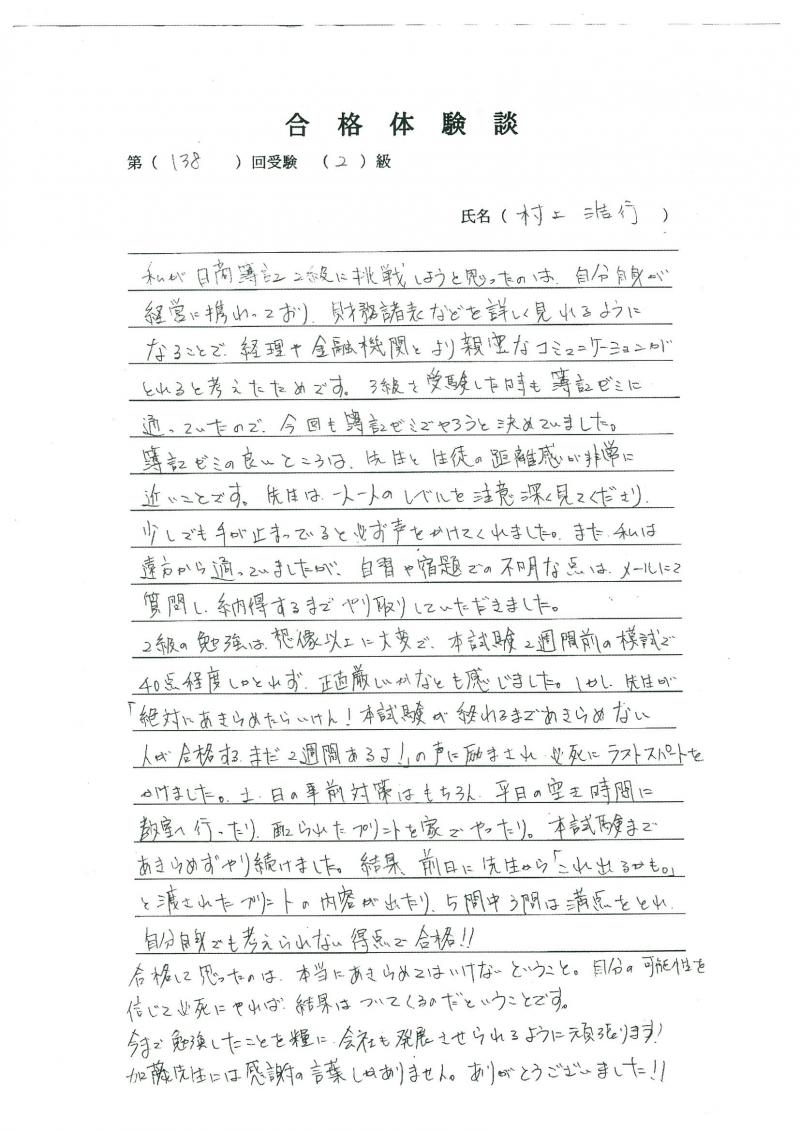 合格体験談
第（ 138 ）回受験 （ 2 ）級
氏名（ 村上 浩行 ）
私が日商簿記2級に挑戦しようと思ったのは、自分自身が
経営に携わっており、財務諸表などを詳しく見れるように
なることで、経理や金融機関とより親密なコミュニケーションが
とれると考えたためです。3級を受験した時も簿記ゼミに
通っていたので、今回も簿記ゼミでやろうと決めていました。
簿記ゼミの良いところは、先生と生徒の距離感が非常に
近いことです。先生は、一人一人のレベルを注意深く見てくださり、
少しでも手が止まっていると必ず声をかけてくれました。また、私は
遠方から通っていましたが、自習や宿題での不明な点は、メールにて
質問し、納得するまでやり取りしていただきました。
2級の勉強は、想像以上に大変で、本試験2週間前の模試で
40点程度しかとれず、正直厳しいかなとも感じました。しかし、先生が
「絶対にあきらめたらいけん！本試験が終わるまであきらめない
人が合格する。まだ2週間あるよ！」の声に励まされ、必死にラストスパートを
かけました。土、日の事前対策はもちろん、平日の空き時間に
教室へ行ったり、配られたプリントを家でやったり。本試験まで
あきらめずやり続けました。結果、前日に先生から「これ出るかも。」
と渡されたプリントの内容が出たり、5問中3問は満点をとれ、
自分自身でも考えられない得点で合格!!
合格して思ったのは、本当にあきらめてはいけないということ。自分の可能性を
信じて必死にやれば、結果はついてくるのだということです。
今まで勉強したことを糧に、会社も発展させられるように頑張ります!
加藤先生には感謝の言葉しかありません。ありがとうございました!!